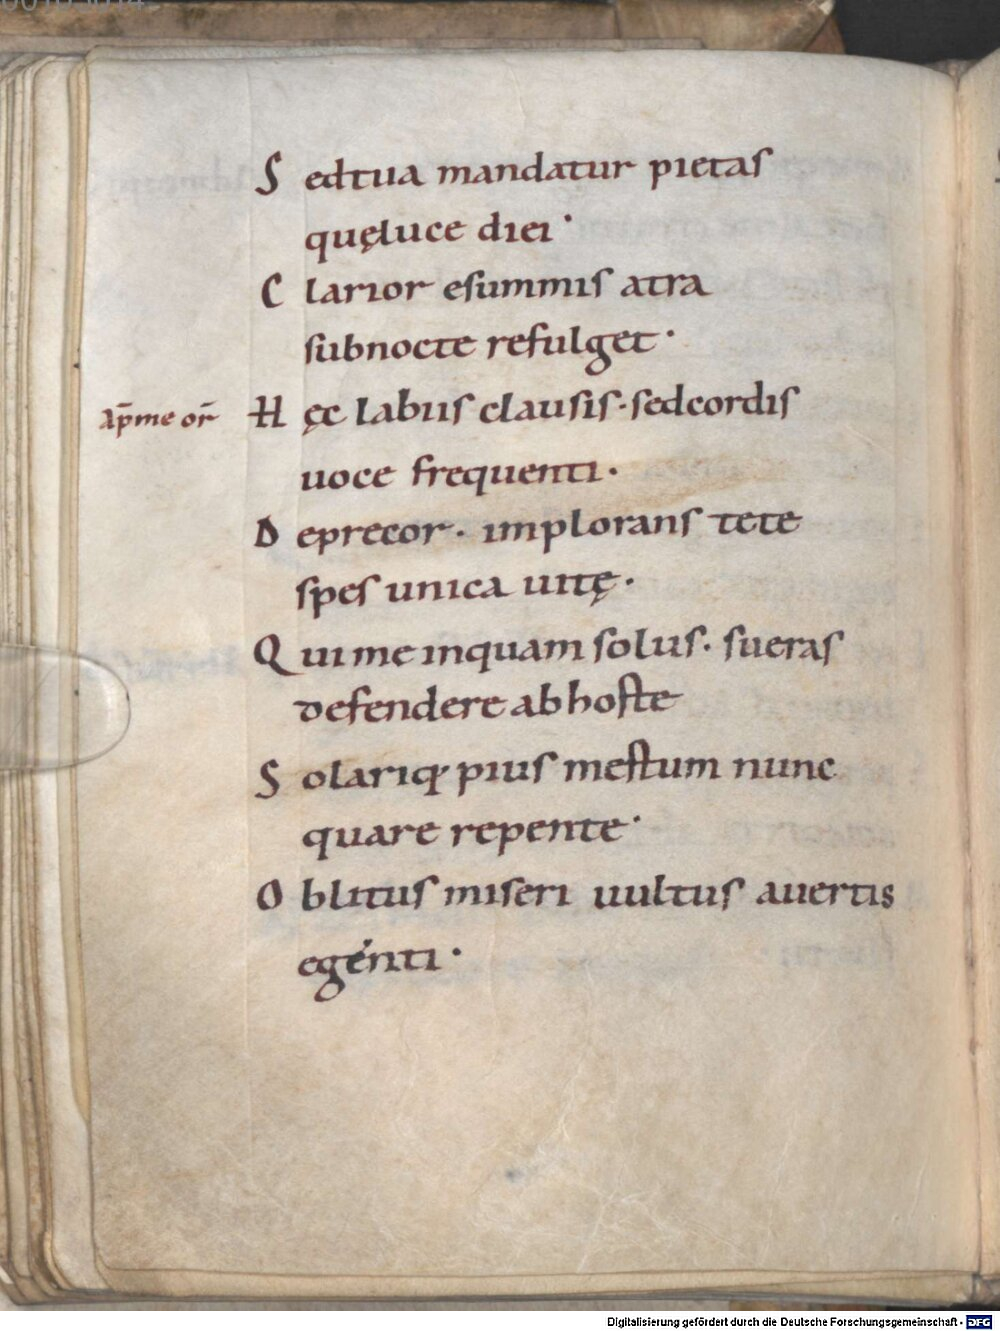 S edtua mandatur pietas
quęluce diei ·
C larior esummis atra
subnocte refulget ·
H ęc labiis clausis · sedcordis
uoce frequenti ·
D eprecor · implorans tete
spes unica uitę ·
Q ui me inquam solus · sueras
defendere ab hoste
S olariq; pius mestum nunc
quare repente ·
O blitus miseri uultus auertis
egénti ·
Digitalisierung gefördert durch die Deutsche Forschungsgemeinschaft - DFG